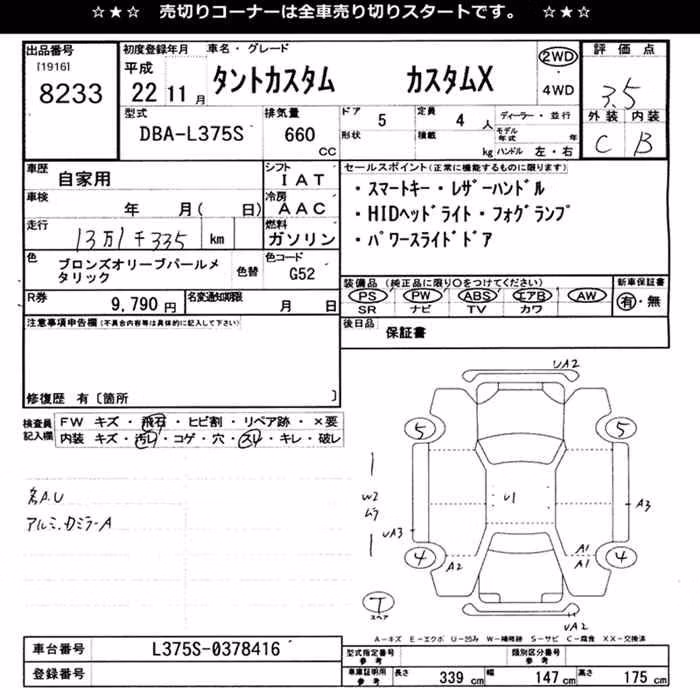 ☆★☆ 売切りコーナーは全車売り切りスタートです。 ☆★☆
出品番号
[1916]
8233
初度登録年月
平成
22 11 月
車名・グレード
タントカスタム カスタムX
2WD
4WD
評価点
3.5
外装 内装
C B
型式
DBA-L375S
排気量
660
cc
ドア
5
形状
定員
4 人
積載
kg
ディーラー・並行
モデル年式 年
ハンドル 左・右
車歴
自家用
シフト
IAT
車検
年 月( 日)
冷房
AAC
走行
13万1千335 km
燃料
ガソリン
色
ブロンズオリーブパールメ
タリック
色替
色コード
G52
R券
9,790 円
名変通知期限
月 日
セールスポイント(正常に機能するものに限り)
・スマートキー・レザーハンドル
・HIDヘッドライト・フォグランプ
・パワースライドドア
装備品 (純正品に限り○をつけてください)
PS PW ABS エアB AW
SR ナビ TV カワ
新車保証書
有・無
後日品
保証書
注意事項申告欄(不具合内容等は具体的に記入して下さい)
修復歴 有〔箇所 〕
検査員
記入欄
FW キズ・飛石・ヒビ割・リペア跡・×要
内装 キズ・汚レ・コゲ・穴・スレ・キレ・破レ
各A.U
アルミ、カミラーA
UA2
5
5
W2
ムラ
U1
A3
UA3
4
A2
A1
A1
4
T
スペア
UA2
A-キズ E-エクボ U-凹み W-補修跡 S-サビ C-腐食 XX-交換済
車台番号
L375S-0378416
登録番号
型式指定番号
参考
類別区分番号
参考
車庫証明用
参考
長さ
339 cm
幅
147 cm
高さ
175 cm